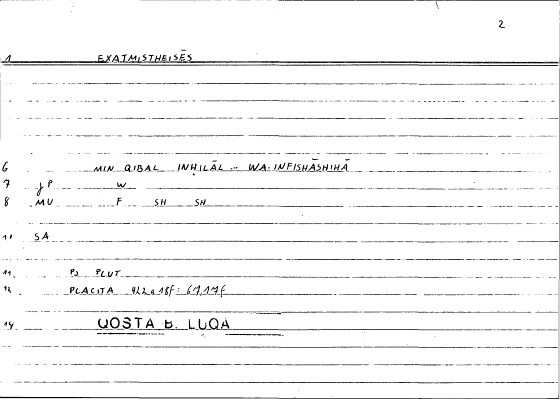 2
1 EXATMISTHEISĒS
6 MIN QIBAL INḤILĀL - WA-INFISHĀSHIHĀ
7 JP W
8 MU F SH SH
10 SA
11 PS PLUT.
12 PLACITA 422 a 18f: 67,17f
14 QOSTA B. LUQA